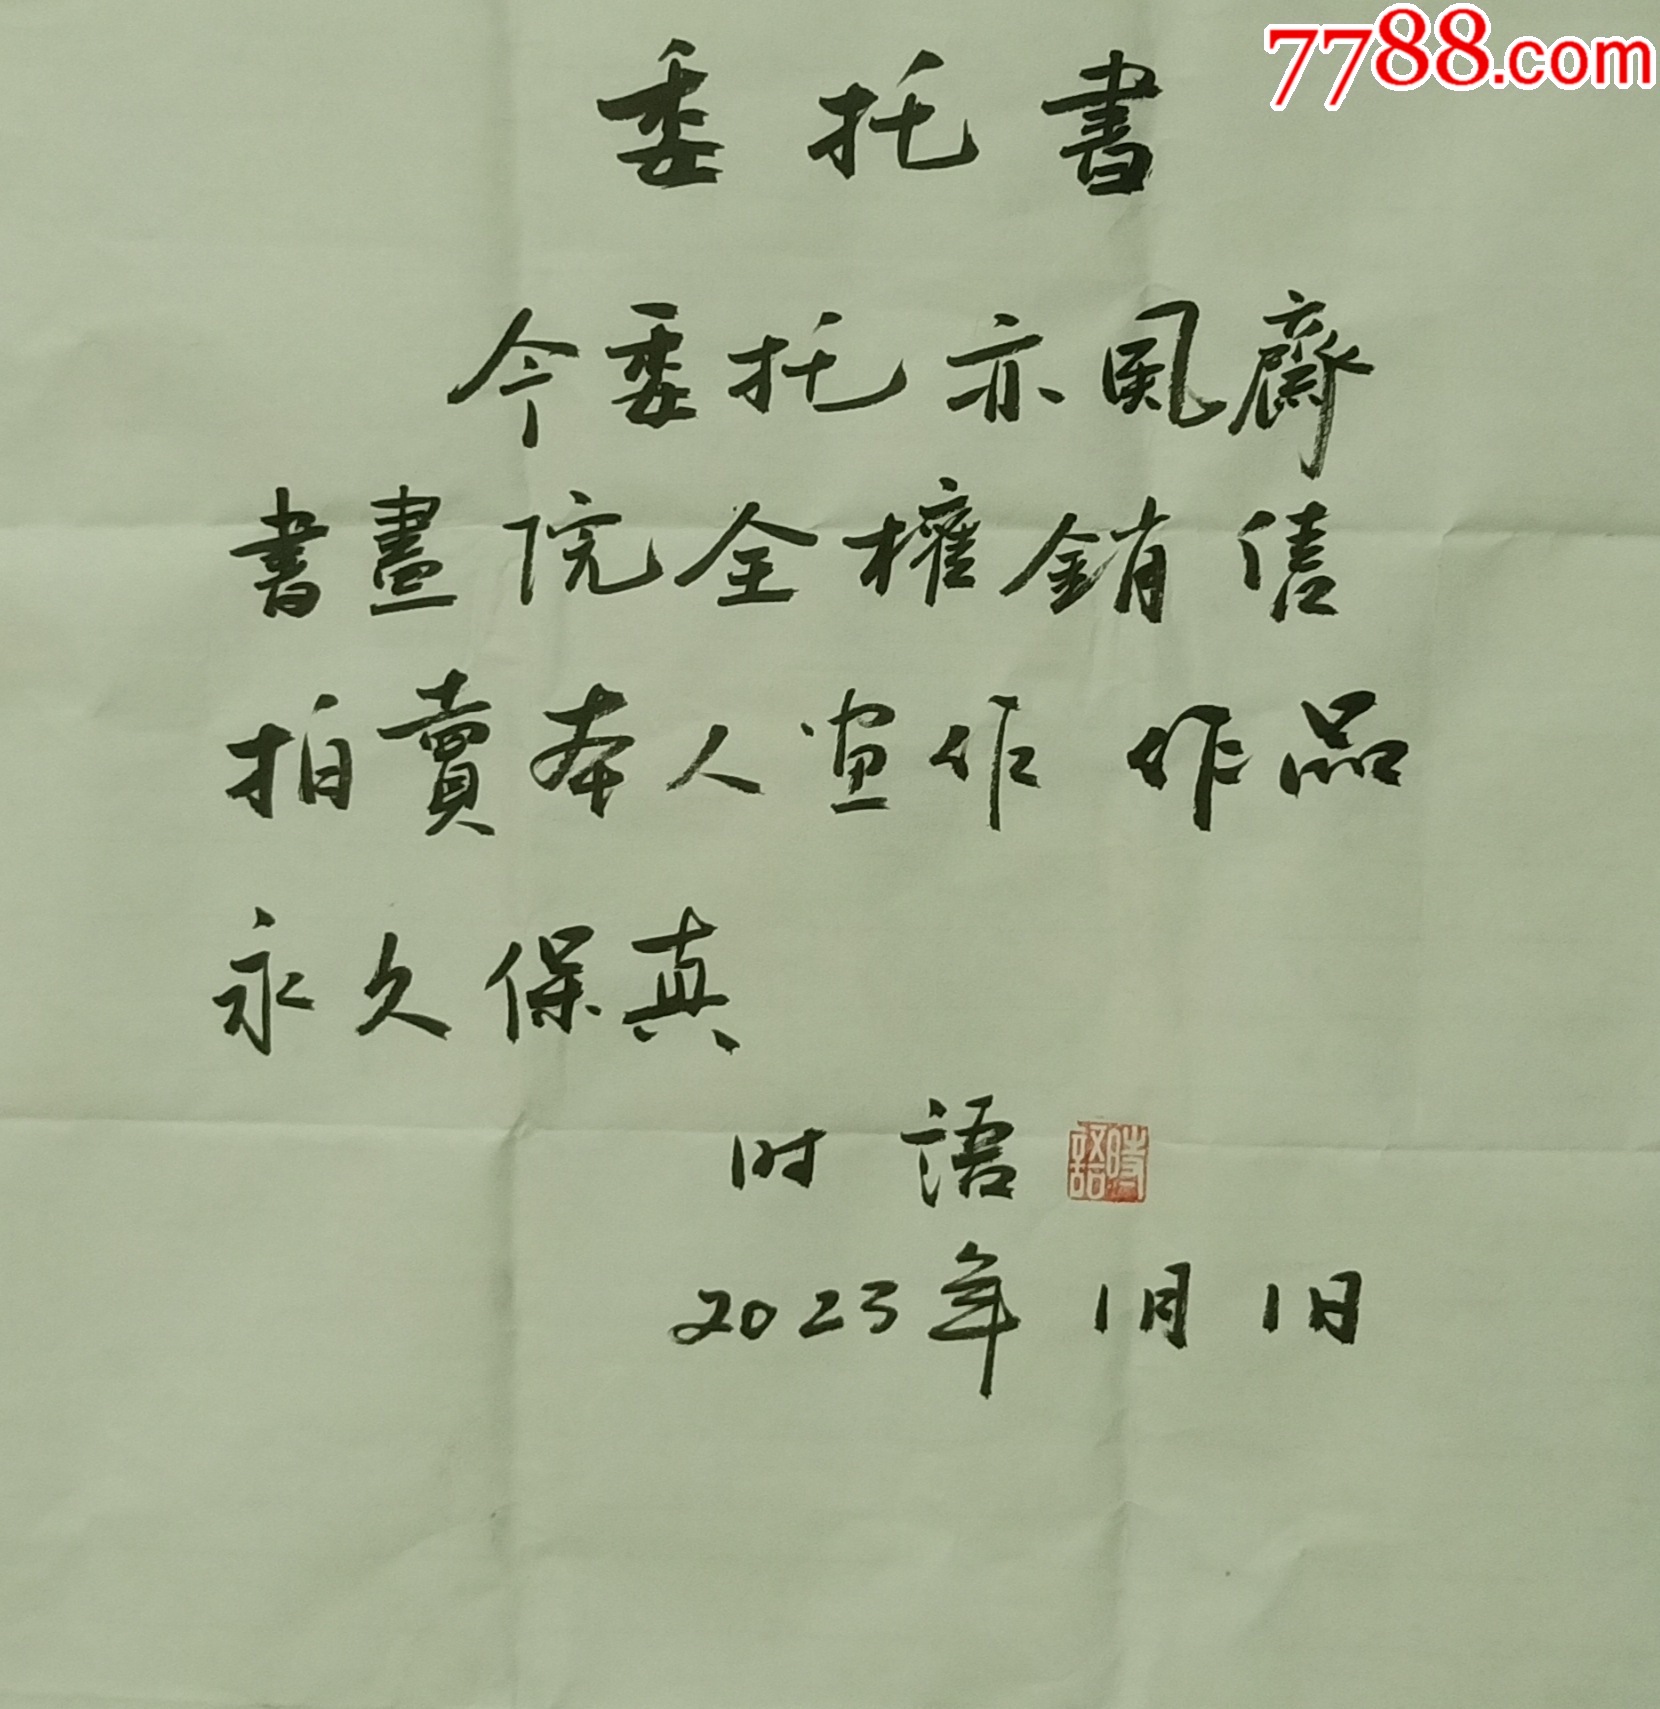 7788.com
委托書
今委托亦风齋
書畫院全權銷售
拍賣本人画作 作品
永久保真
时語
時語
2023年1月1日